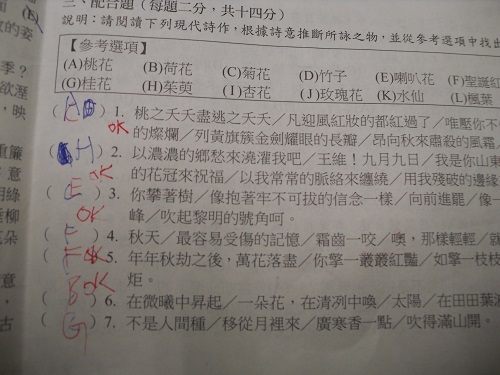 三、配合題(每題二分，共十四分)
說明：請閱讀下列現代詩作，根據詩意推斷所詠之物，並從參考選項中找出
【參考選項】
(A)桃花 (B)荷花 (C)菊花 (D)竹子 (E)喇叭花 (F)聖誕紅
(G)桂花 (H)茱萸 (I)杏花 (J)玫瑰花 (K)水仙 (L)楓葉
( )1. 桃之夭夭盡逃之夭夭／凡迎風紅妝的都紅過了／唯壓你不
OK 的燦爛／列黃旗族金劍耀眼的長瓣／昂向秋來肅殺的風霜
(H)2. 以濃濃的鄉愁來澆灌我吧／王維！九月九日／我是你山東
OK 的花冠來祝福／以我常常的脈絡來纏繞／用我殘破的邊緣
(E)3. 你攀著樹／像抱著牢不可拔的信念一樣／向前進罷／像一
OK 峰／吹起黎明的號角呵。
(F)4. 秋天／最容易受傷的記憶／霜齒一咬／噢，那樣輕輕／就
(F)5. 年年秋劫之後，萬花落盡／你擎一叢叢紅豔／如擎一枝枝
OK 炬。
(B)6. 在微曦中昇起／一朵花，在清冽中喚／太陽／在田田葉
(G)7. 不是人間種／移從月裡來／廣寒香一點／吹得滿山開。